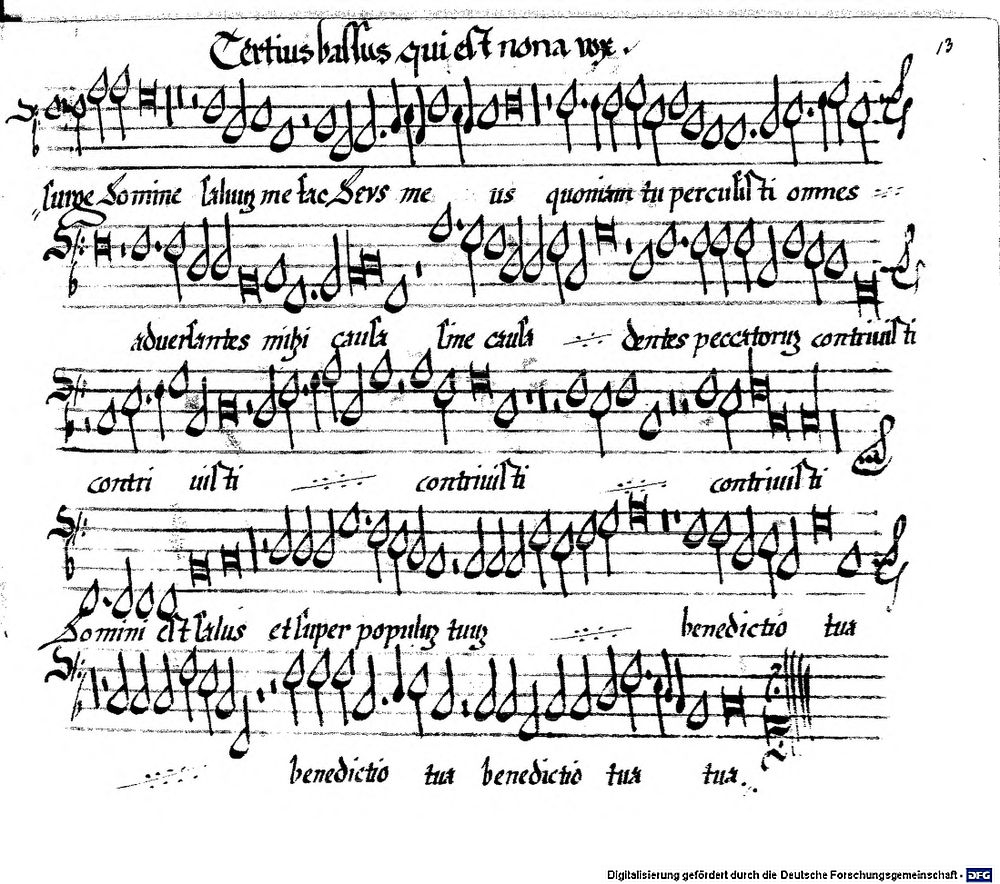 Tertius bassus qui est nona vox.
13
surge Domine salvuz me fac Devs me us quoniam tu percusisti omnes
adversantes mihi causa sine causa dentes peccatoruz contrivisti
contri visti contrivisti contrivisti
Domini est salus et super populuz tuuz benedictio tua
benedictio tua benedictio tua tua.
Digitalisierung gefördert durch die Deutsche Forschungsgemeinschaft - DFG